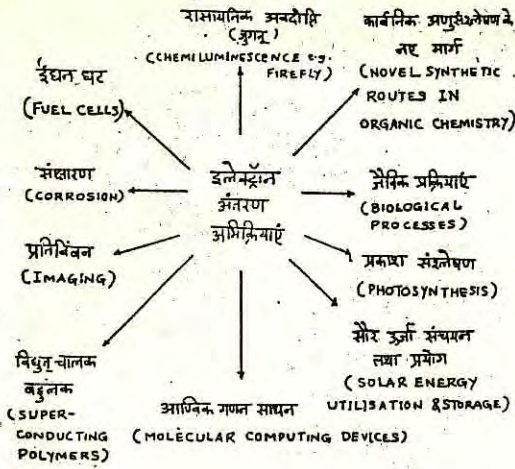 रासायनिक अवदीप्ति
(जुगनू)
(CHEMILUMINESCENCE e.g.
FIREFLY)
कार्बनिक अणुसंश्लेषण के
नए मार्ग
(NOVEL SYNTHETIC
ROUTES IN
ORGANIC CHEMISTRY)
ईंधन घट
(FUEL CELLS)
संक्षारण
(CORROSION)
इलेक्ट्रॉन
अंतरण
अभिक्रियाएं
जैविक प्रक्रियाएं
(BIOLOGICAL
PROCESSES)
प्रतिबिंबन
(IMAGING)
प्रकाश संश्लेषण
(PHOTOSYNTHESIS)
सौर उर्जा संचयन
तथा प्रयोग
(SOLAR ENERGY
UTILISATION & STORAGE)
विधुत् चालक
बहुलक
(SUPER-
CONDUCTING
POLYMERS)
आण्विक गणन साधन
(MOLECULAR COMPUTING DEVICES)